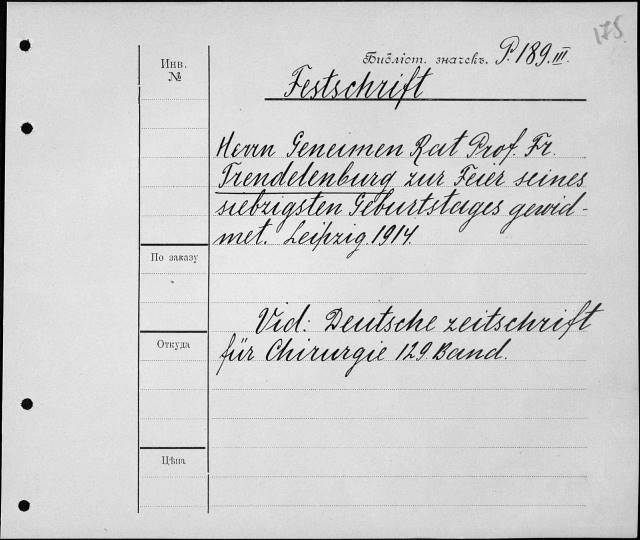 175
Инв.
№
Библіот. значекъ. P. 189. III.
Festschrift
Herrn Geneimen Rat Prof. Fr.
Trendelenburg zur Feier seines
siebzigsten Geburtstages gewid-
met. Leipzig. 1914.
По заказу
Vid: Deutsche zeitschrift
Откуда
für Chirurgie 129. Band.
Цѣна